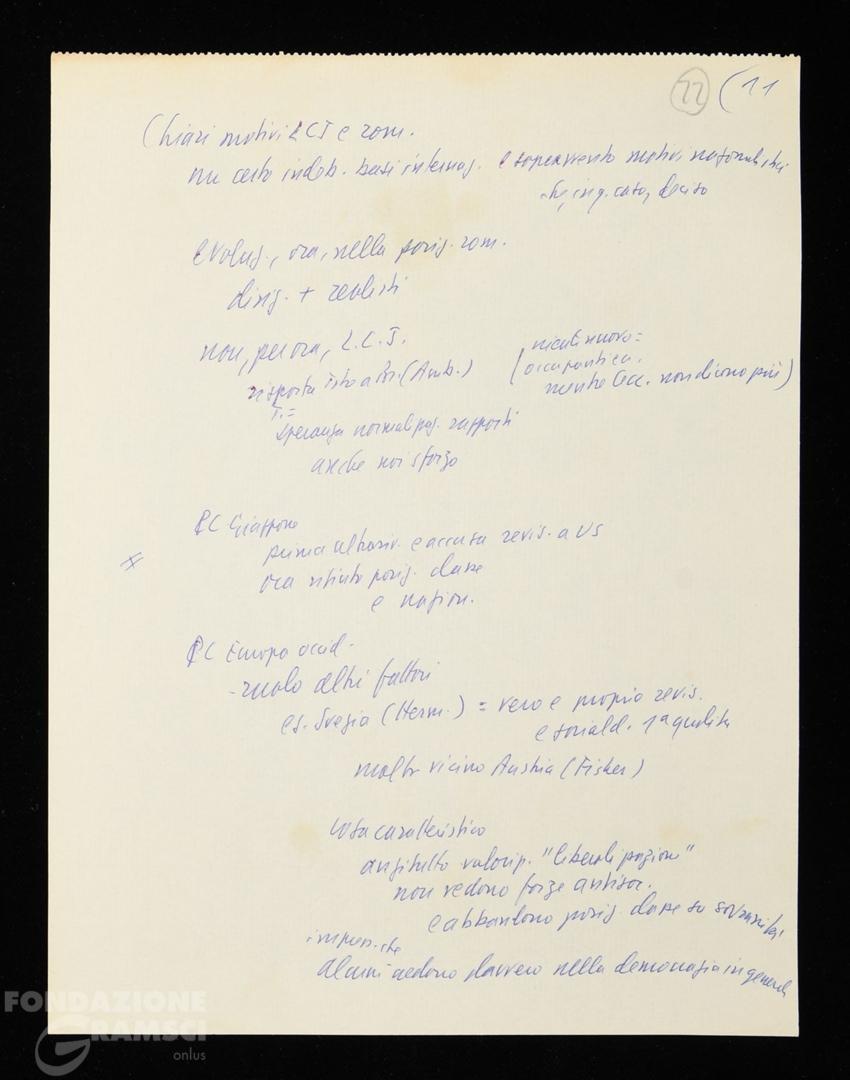 22 (11
Chiari motivi LCI e rom.
ma certo indeb. basi internaz. e sopravvento motivi nazionalistici
che, in q. caso, deciso
evoluz., ora, nella posiz. rom.
dirig. + realisti
non, per ora, L.C.I.
risposta Tito a Br. (Amb.)
(niente nuovo =
occupanti ecc.
mentre Cec. non dicono più)
T. =
speranza normalizzaz. rapporti
anche noi sforzo
PC Giappone
prima altrasiv. e accusa revis. a US
ora rifiuto posiz. classe
e nazion.
PC Europa occid.
- ruolo altri fattori
es. Svezia (Herm.) = vero e proprio revis.
e sociald. 1ª qualità
molto vicino Austria (Fisher)
cosa caratteristico
anzitutto valorizz. "liberalizzazione"
non vedono forze antisoc.
e abbandono posiz. classe su sovranità
impress. che
alcuni credono davvero nella democrazia in generale
FONDAZIONE
GRAMSCI
onlus